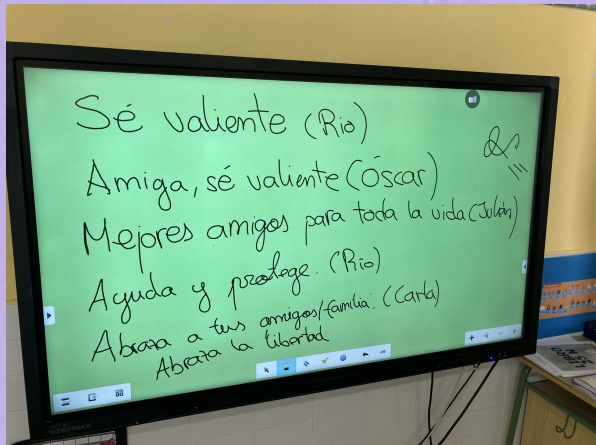 Sé valiente (Rio)
Amiga, sé valiente (Óscar)
Mejores amigos para toda la vida (Julián)
Ayuda y protege. (Rio)
Abraza a tus amigos/familia. (Carla)
Abraza la libertad